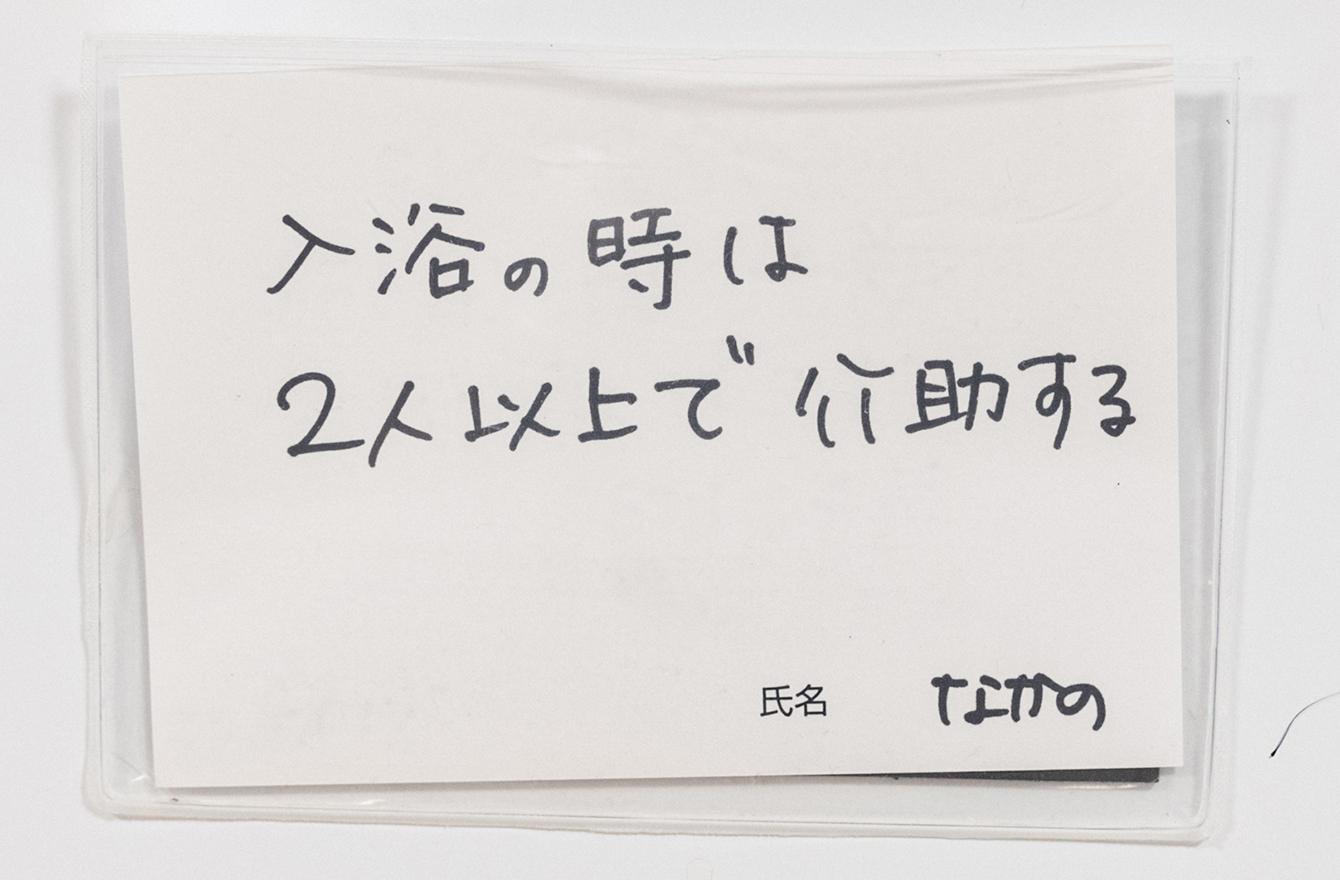 入浴の時は
2人以上で介助する
氏名 なかの